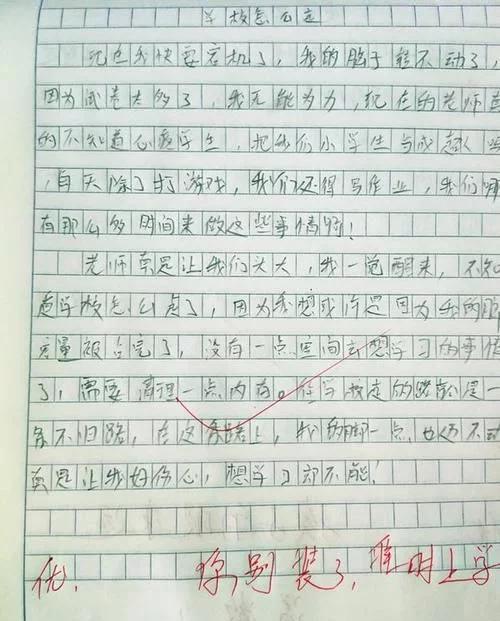 学校怎么走
现在我快要宕机了，我的脑子转不动了，
因为试卷太多了，我无能为力，现在的老师真
的不知道心疼学生，把我们小学生当成超人
，每天除了打游戏，我们还得写作业，我们哪
有那么多时间来做这些事情啊！
老师真是让我们头大，我一觉醒来，不知
道学校怎么走了，因为我想或许是因为我的脑
容量被占完了，没有一点空间去想学习的事情
了，需要清理一点内存。在写校走的路就是一
条不归路，在这条路上，我的脚一点也迈不动
真是让我好伤心，想学习却不能！
优，你别装了，明上学